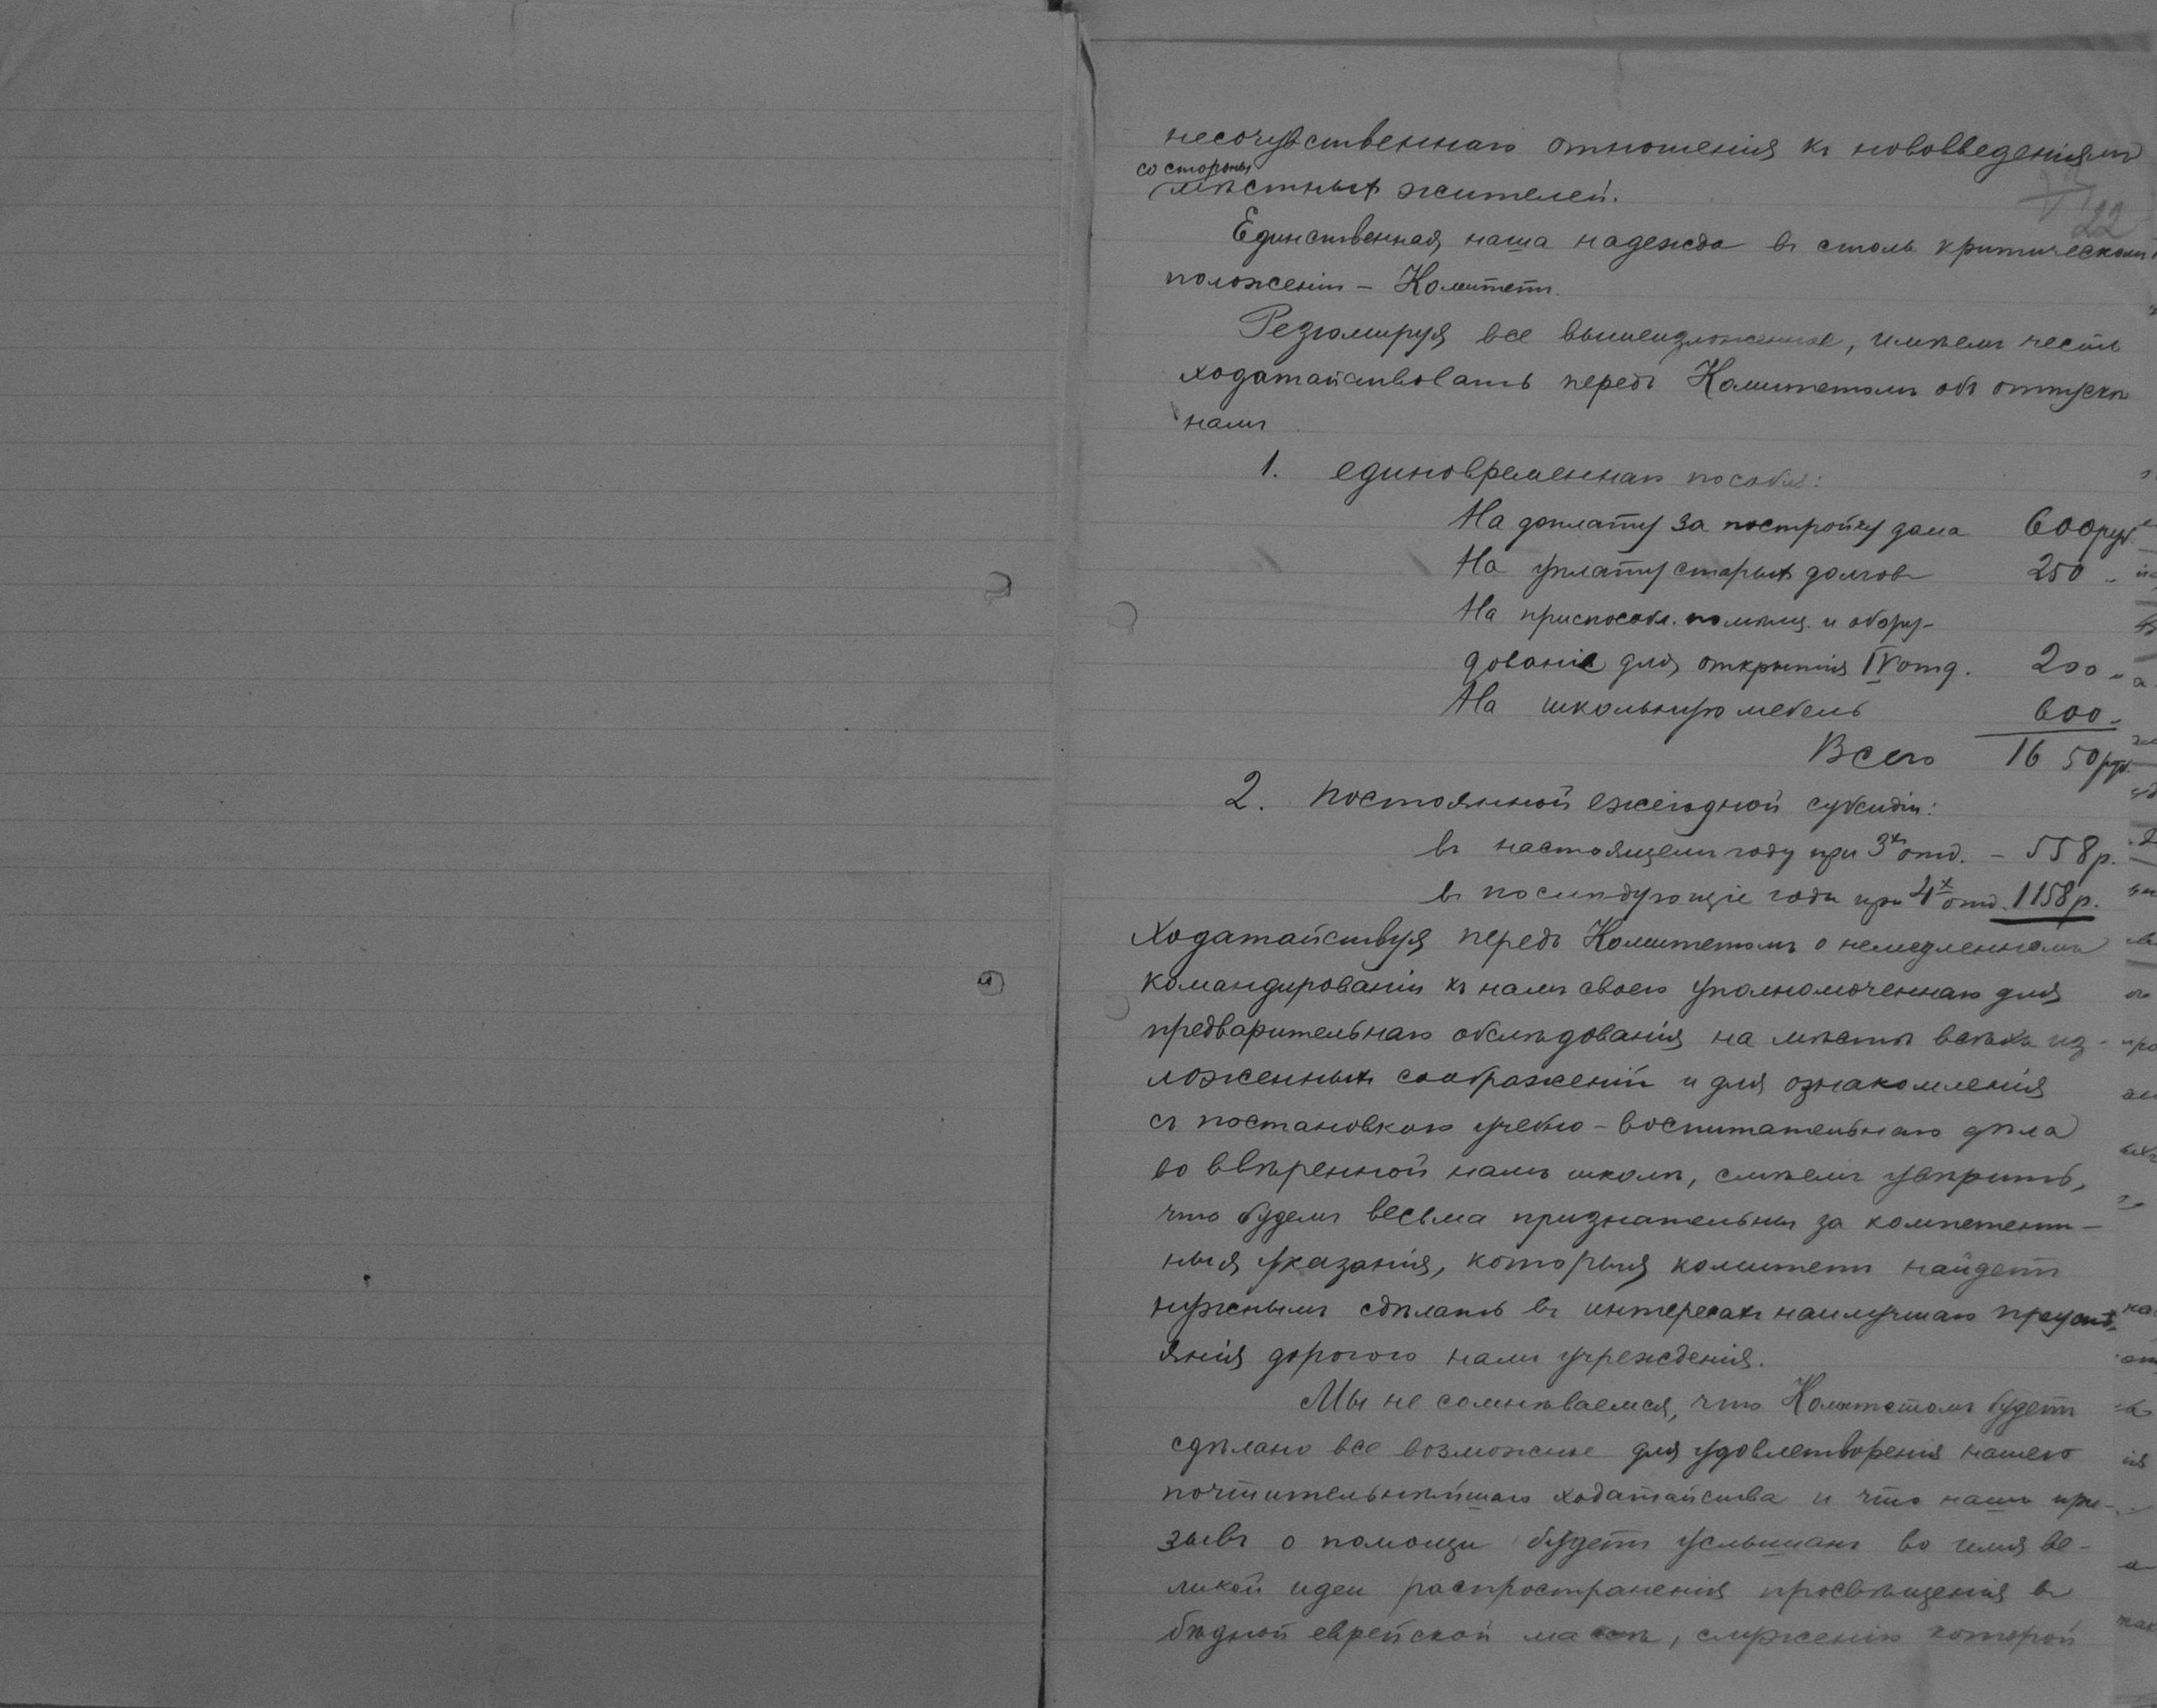 несочувственнаго отношенія къ нововведеніямъ
со стороны
мѣстныхъ жителей.
22
Единственная наша надежда въ столь критическомъ
положеніи – Комитетъ.
Резюмируя все вышеизложенное, имѣемъ честь
ходатайствовать передъ Комитетомъ объ отпускѣ
намъ
1. единовременнаго пособія:
На доплату за постройку дома 600 руб.
На уплату старыхъ долговъ 250 "
На приспособл. помѣщ. и обору-
дованіе для открытія IV отд. 200 "
На школьную мебель 600 "
Всего 1650 руб.
2. постоянной ежегодной субсидіи:
въ настоящемъ году при 3хъ отд. – 558 р.
въ послѣдующіе годы при 4х отд. 1158 р.
Ходатайствуя передъ Комитетомъ о немедленномъ
командированіи къ намъ своего уполномоченнаго для
предварительнаго обслѣдованія на мѣстѣ всѣхъ из-
ложенныхъ соображеній и для ознакомленія
съ постановкою учебно-воспитательнаго дѣла
во ввѣренной намъ школѣ, смѣемъ увѣрить,
что будемъ весьма признательны за компетент-
ныя указанія, которыя комитетъ найдетъ
нужнымъ сдѣлать въ интересахъ наилучшаго преуспѣ-
янія дорогого намъ учрежденія.
Мы не сомнѣваемся, что Комитетомъ будетъ
сдѣлано все возможное для удовлетворенія нашего
почтительнѣйшаго ходатайства и что нашъ при-
зывъ о помощи будетъ услышанъ во имя ве-
ликой идеи распространенія просвѣщенія въ
бѣдной еврейской массѣ, служенію которой